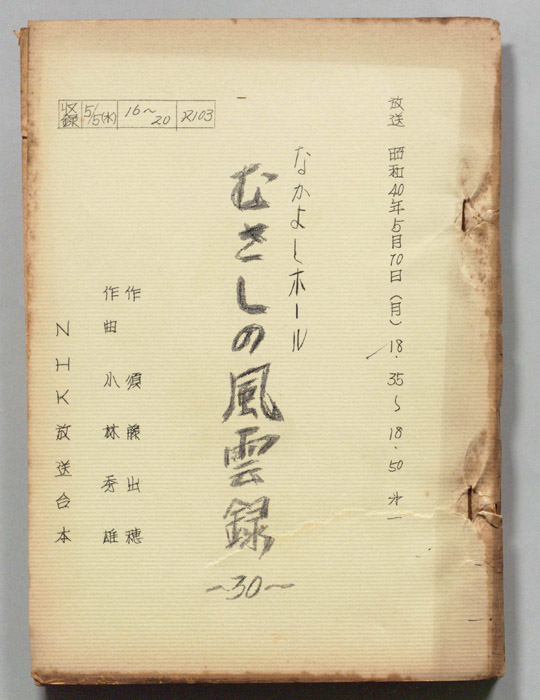 放送 昭和40年5月10日(月) 18.35〜18.50 オ一
なかよしホール
むさしの風雲録
〜30〜
作 須藤出穂
作曲 小林秀雄
NHK放送台本
収録 5/5(水) 16〜20 R103